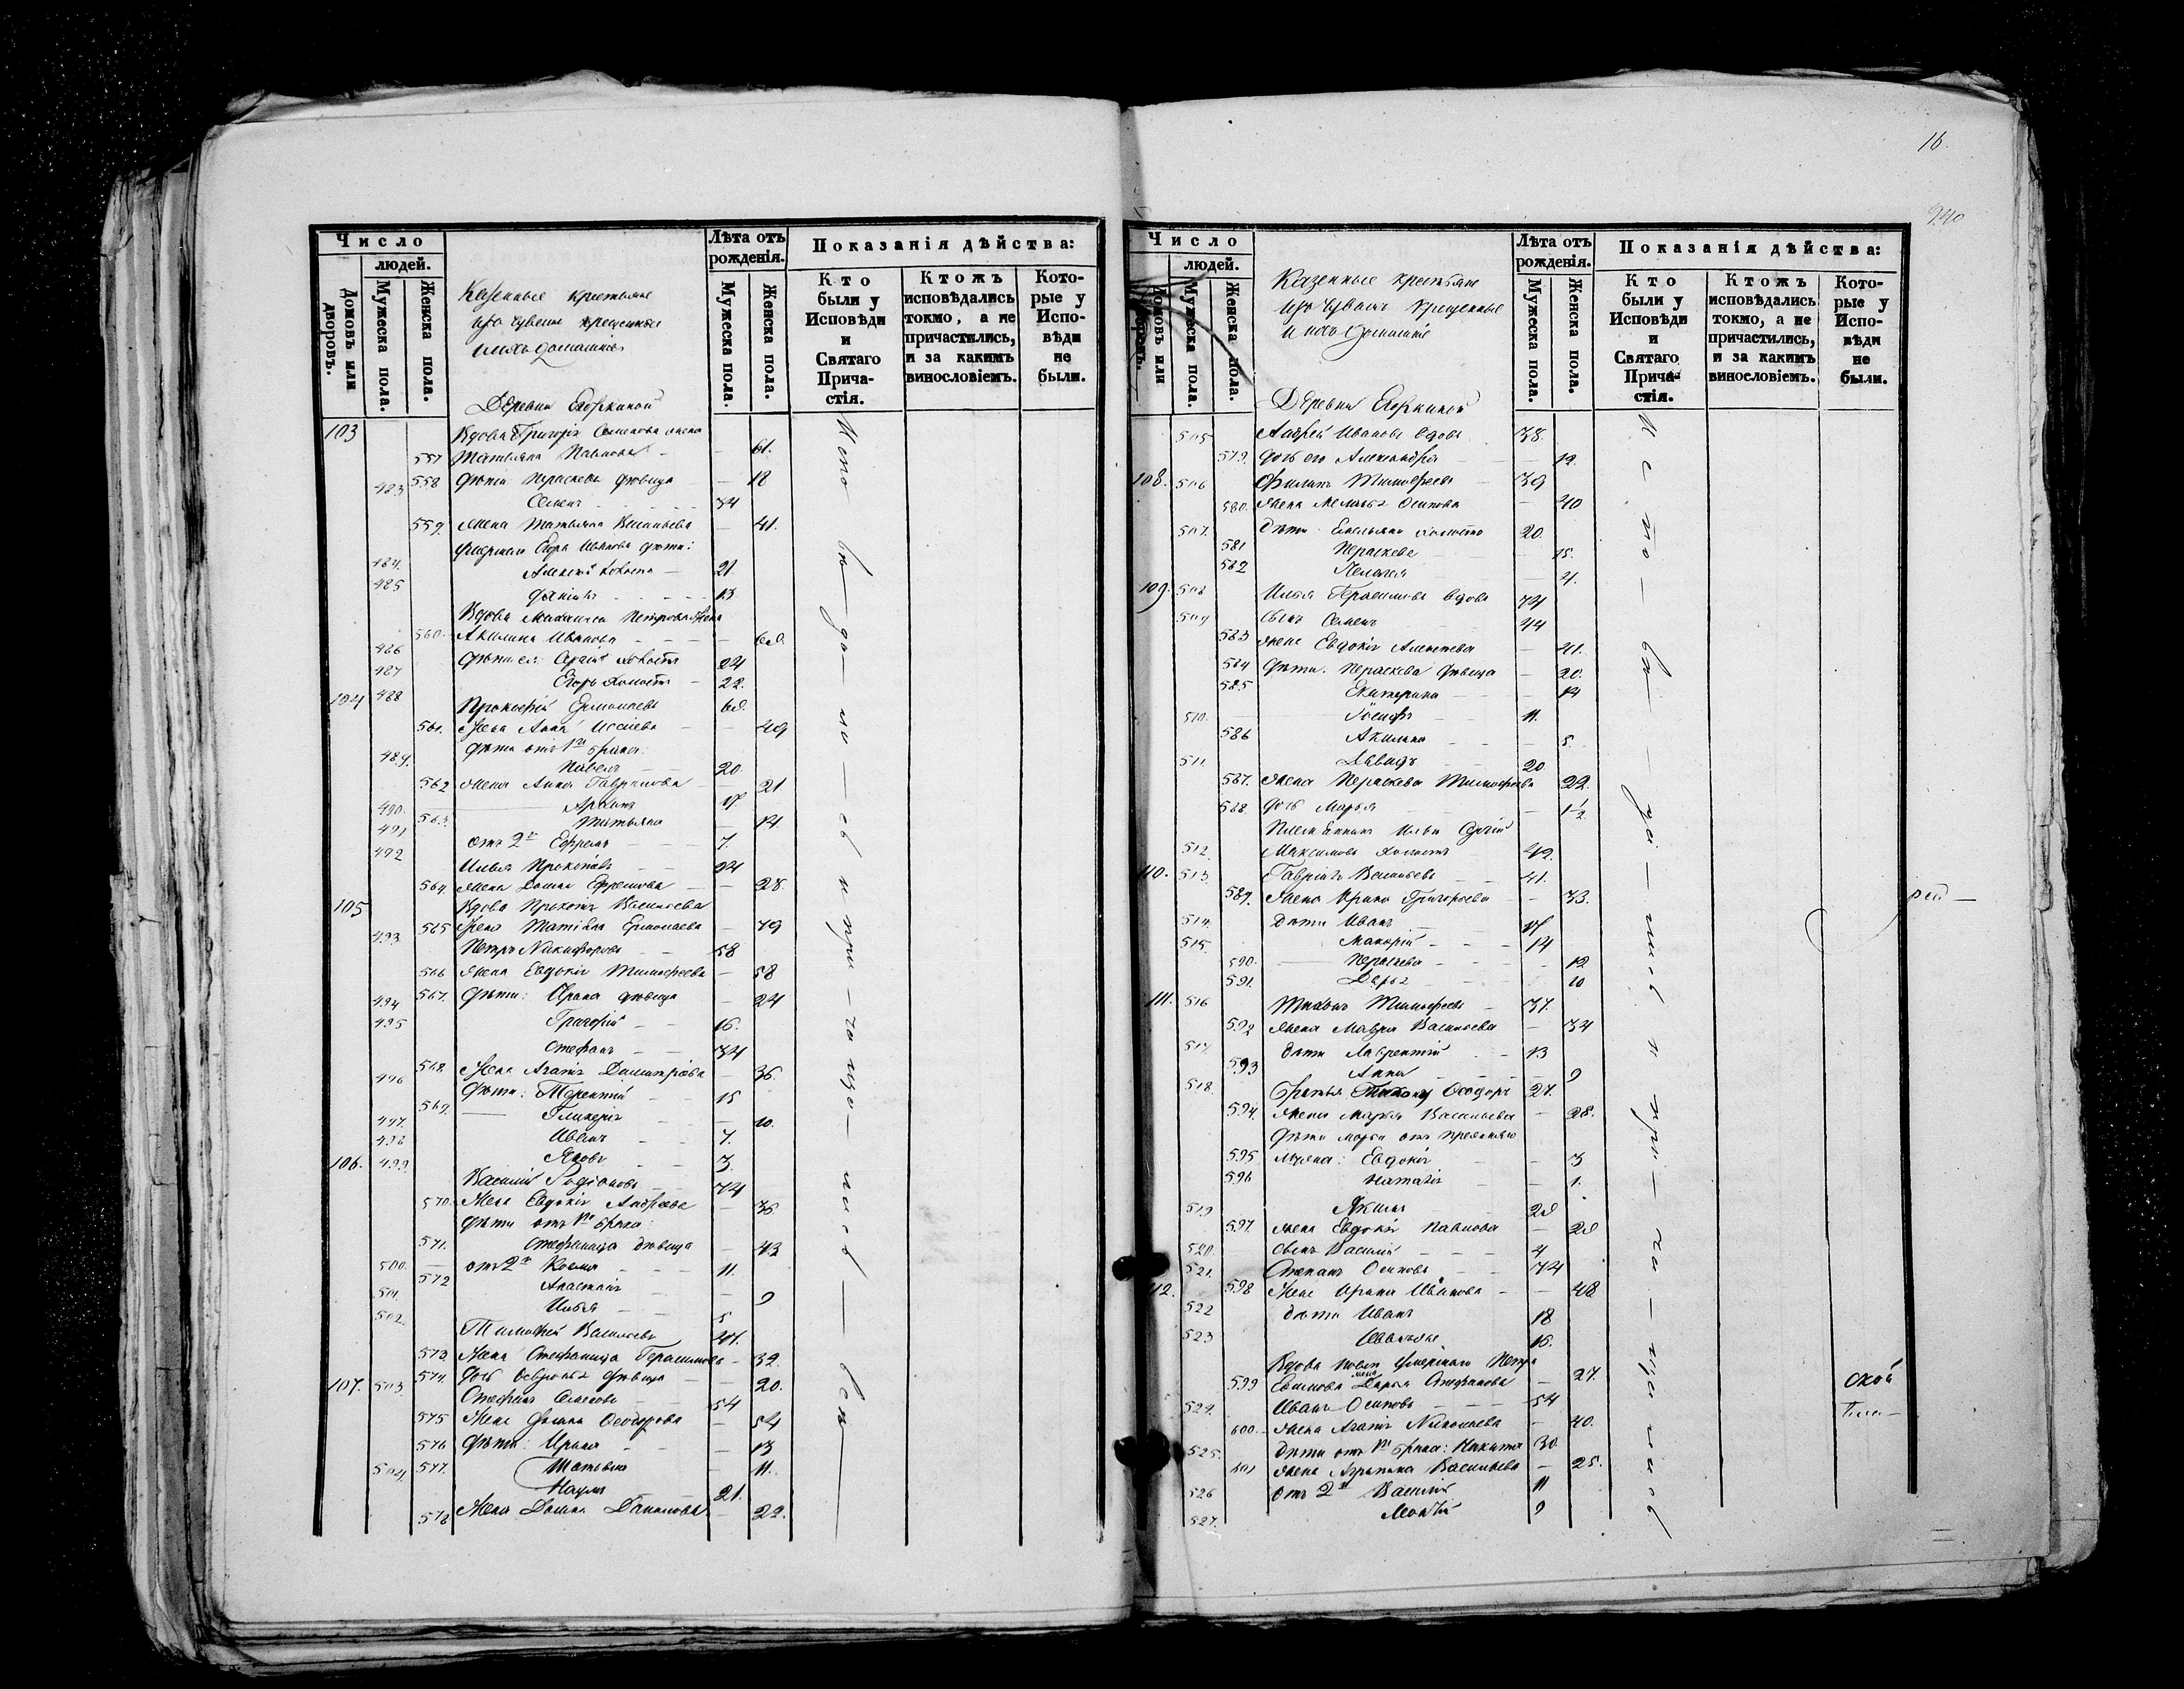 Число
людей.
Домовъ или дворовъ.
Мужеска пола.
Женска пола.
Казенные крестьяне
изъ Чувашъ крещеные
и ихъ домашніе
Лѣта отъ рожденія.
Мужеска пола.
Женска пола.
Показанія дѣйства:
Кто были у Исповѣди и Святаго Причастія.
Ктожъ исповѣдались токмо, а не причастились, и за какимъ винословіемъ.
Которые у Исповѣди не были.
Деревни
103 Вдова Григорія Семенова жена
557 Татьяна Павлова 61.
558 дѣти Пераскева дѣвица 18
483 Семенъ 34
559. Жена Татьяна Васильева 41.
умершаго Егора Иванова дѣти:
484. Алексѣй холостъ 21
485 13
Вдова Михаила Петрова жена
560. Акилина Иванова 60.
486 дѣти ея: Сергій холостъ 24
487 Егоръ холостъ 22.
104 488 Прокофій Ермолаевъ 60.
561. Жена Анна 49
дѣти отъ 1го брака:
489. Павелъ 20.
562 Жена Анна Гаврилова 21
490. 17.
491 563. Татьяна 14.
отъ 2го Ефремъ 7.
492 Илья Прокопіевъ 24
564. Жена Домна Ефремова 28.
105 Вдова Прокопія Васильева
565 Жена Матрена Ермолаева 79
493 Петръ Никифоровъ 58
566 Жена Евдокія Тимофеева 58
567. дѣти: Ирина дѣвица 24
494
495 Григорій 16.
Стефанъ 34
568. Жена Агафія Димитріева 36.
496 дѣти: Терентій 15
569. Гликерія 10.
497. Иванъ 7.
498 Яковъ 3.
106. 499 Василій Родіоновъ 74
570. Жена Евдокія Андреева 36.
дѣти отъ 1го брака:
571. Стефанида дѣвица 43
500. отъ 2го Козма 11.
572 Анастасія 9
501 Илья 5
502. Тимофей Васильевъ 41.
573. Жена Стефанида Герасимова 32.
574. дочь Февронья дѣвица 20.
107. 503. Стефанъ Семеновъ 54
575 Жена Домна Ѳеодорова 54
576 дѣти: Ирина 13
504 577. Татьяна 11.
Наумъ 21.
578 Жена Домна Данилова 22.
16.
940
Число
людей.
Домовъ или дворовъ.
Мужеска пола.
Женска пола.
Казенные крестьяне
изъ Чувашъ крещенные
и ихъ домашніе
Лѣта отъ рожденія.
Мужеска пола.
Женска пола.
Показанія дѣйства:
Кто были у Исповѣди и Святаго Причастія.
Ктожъ исповѣдались токмо, а не причастились, и за какимъ винословіемъ.
Которые у Исповѣди не были.
Деревни
505 Андрей Ивановъ вдовъ 38.
579. дочь его Александра 12.
108. 506 Филипъ Тимофеевъ 39
580. Жена Меланья Осипова 40
507. дѣти: Емельянъ холостъ 20.
581 Пераскева 15.
582 Пелагея 4.
109. 508 Илья Герасимовъ вдовъ 74
509 сынъ Семенъ 44
583 Жена Евдокія Алексеева 41.
584 дѣти: Пераскева дѣвица 20.
585 Екатерина 14
510. Іосифъ 11.
586 Акилина 5.
511. Давидъ 20
587. Жена Пераскева Тимофеева 22.
588. дочь Марья 1½
Племянникъ Ильи Сергій
512. Максимовъ холостъ 42.
110. 513. Гавріилъ Васильевъ 41.
589. Жена Ирина Григорьева 33.
514. дѣти Иванъ 17
515. Макарій 14
590. Пераскева 12
591. Дарья 10
111. 516 Тихонъ Тимофеевъ 37.
592 Жена Мавра Васильева 34
517. дѣти Лаврентій 13
593 Анна 9
518. братья Тихона Ѳеодоръ 27.
594. Жена Марья Васильева 28.
дѣти Марьи отъ прежняго
595 мужа: Евдокія 3
596 Наталія 1.
519 Акимъ 20
597. Жена Евдокія Павлова 20
520. сынъ Василій 4
521. Степанъ Осиповъ 74
112. 598 Жена Ирина Иванова 48
522 дѣти Иванъ 18
523 16.
Вдова умершаго Петра
599 Дарья Стефанова 27.
524. Иванъ Осиповъ 54
600. Жена Агафія Николаева 40.
525. дѣти отъ 1го брака: Никита 30.
601 Жена Агрипина Васильева 25.
526 отъ 2го Василій 11
527. 9